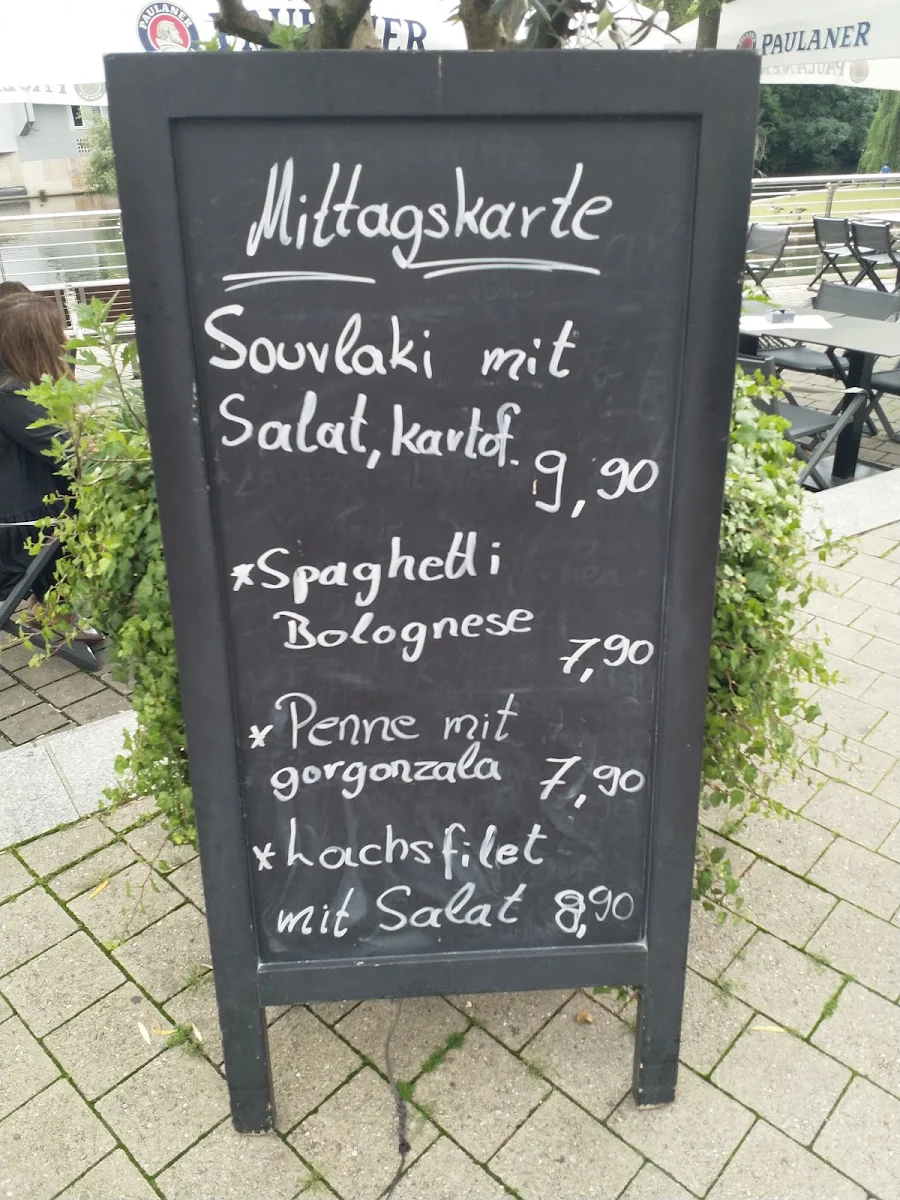 PAULANER
PAULANER
PAULANER
Mittagskarte
Souvlaki mit
Salat, kartof. 9,90
*Spaghetti
Bolognese 7,90
*Penne mit
gorgonzala 7,90
*Lachsfilet
mit Salat 8,90